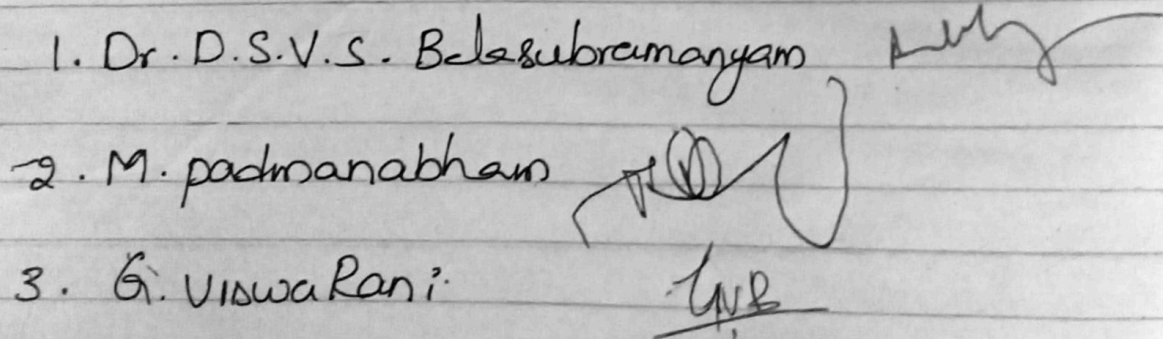 1. Dr. D.S.V.S. Balasubramanyam
2. M. padmanabham
3. G. Viswa Rani